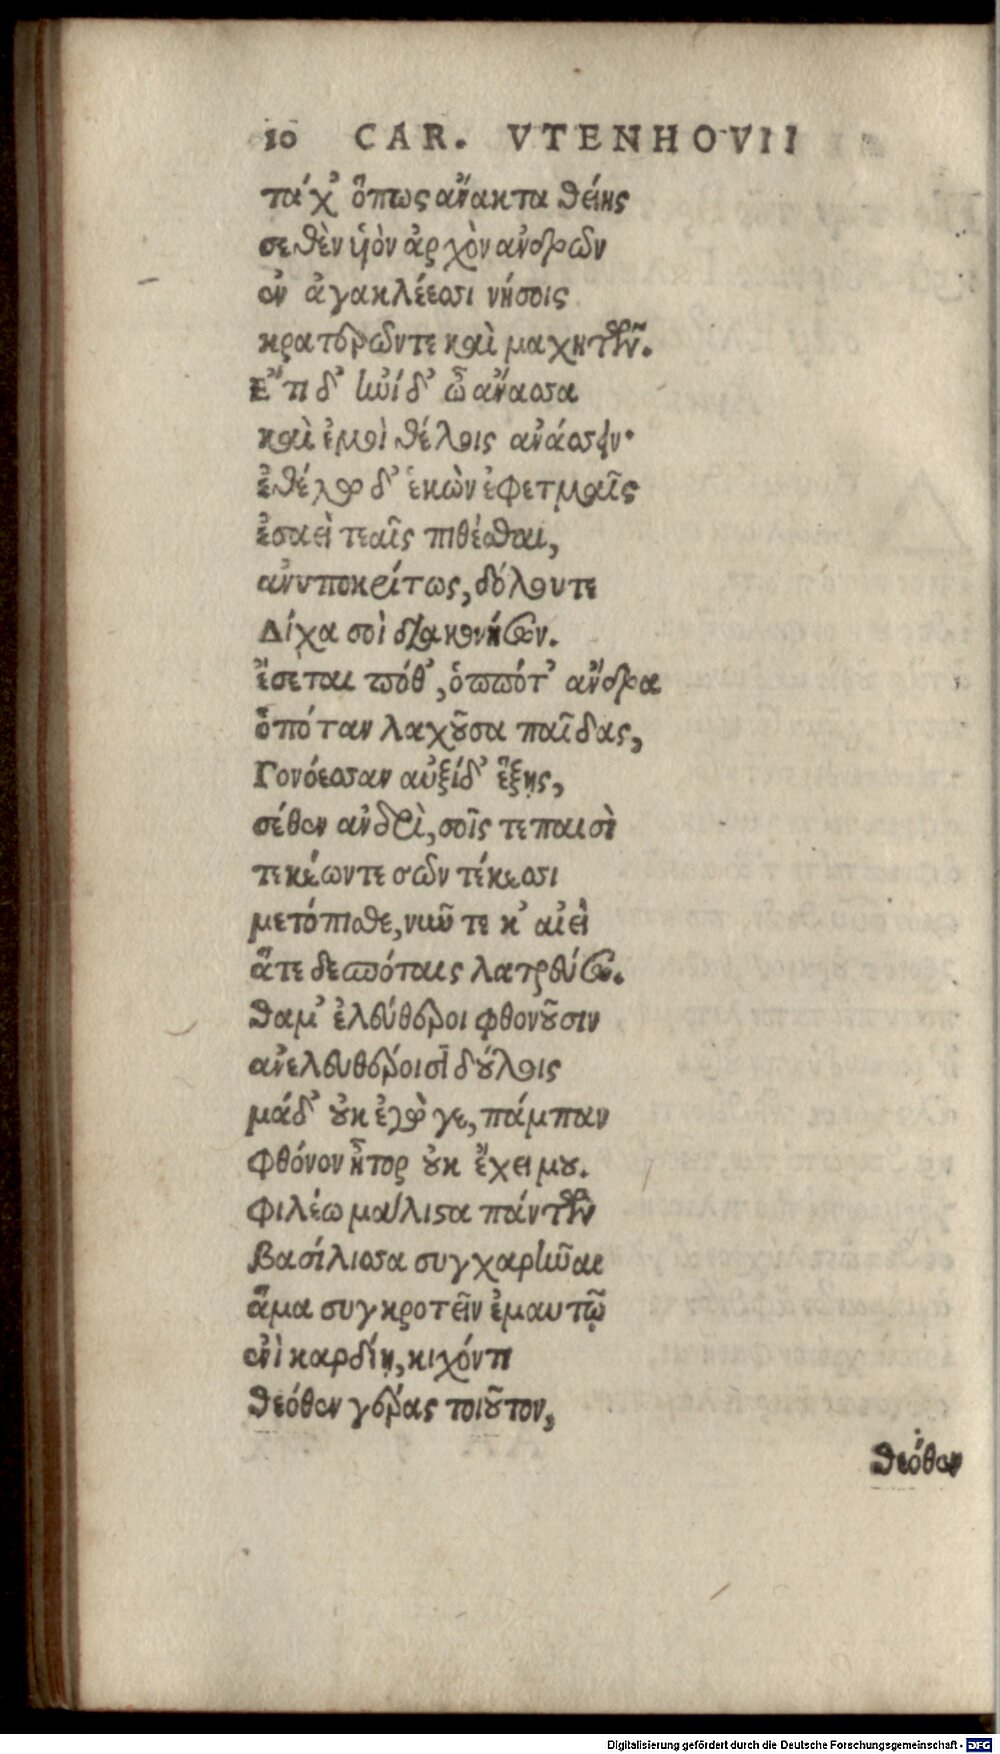 10 CAR. VTENHOVII
τάχ᾽ ὅπως ἄνακτα θείης
σέθεν υἱὸν ἀρχὸν ἀνδρῶν
ἐν ἀγακλέεσσι νήσοις
κρατερῶν τε καὶ μαχητῶν.
Ἔτι δ᾽ ἢν δ᾽ ὦ ἄνασσα
καὶ ἐμοὶ θέλοις ἀνάσσειν·
ἐθέλω δ᾽ ἑκὼν ἐφετμαῖς
ἐσαεὶ τεαῖς πιθέσθαι,
ἀνυποκρίτως, δόλου τε
Δίχα σοὶ διακονήσων.
ἔσεται πόθ᾽, ὁππότ᾽ ἄνδρα
ὁπόταν λαχοῦσα παῖδας,
Γονόεσσαν αὖξιν δ᾽ ἕξῃς,
σέθεν ἀνδρὶ, σοῖς τε παισὶ
τεκέων τε σῶν τέκεσσι
μετόπισθε, νῦν τε κ᾽ αἰεὶ
ἅτε δεσπόταις λατρεύσω.
θαμ᾽ ἐλεύθεροι φθονοῦσιν
ἀνελευθέροισι δούλοις
μάδ᾽ οὐκ ἐγώ γε, πάμπαν
φθόνον ἦτορ οὐκ ἔχει μου.
φιλέω μάλιστα πάντων
βασίλισσα συγχαρῆναι
ἅμα συγκροτεῖν ἐμαυτῷ
ἐνὶ καρδίῃ, κιχόντι
θεόθεν γέρας τοιοῦτον,
θεόθεν
Digitalisierung gefördert durch die Deutsche Forschungsgemeinschaft - DFG